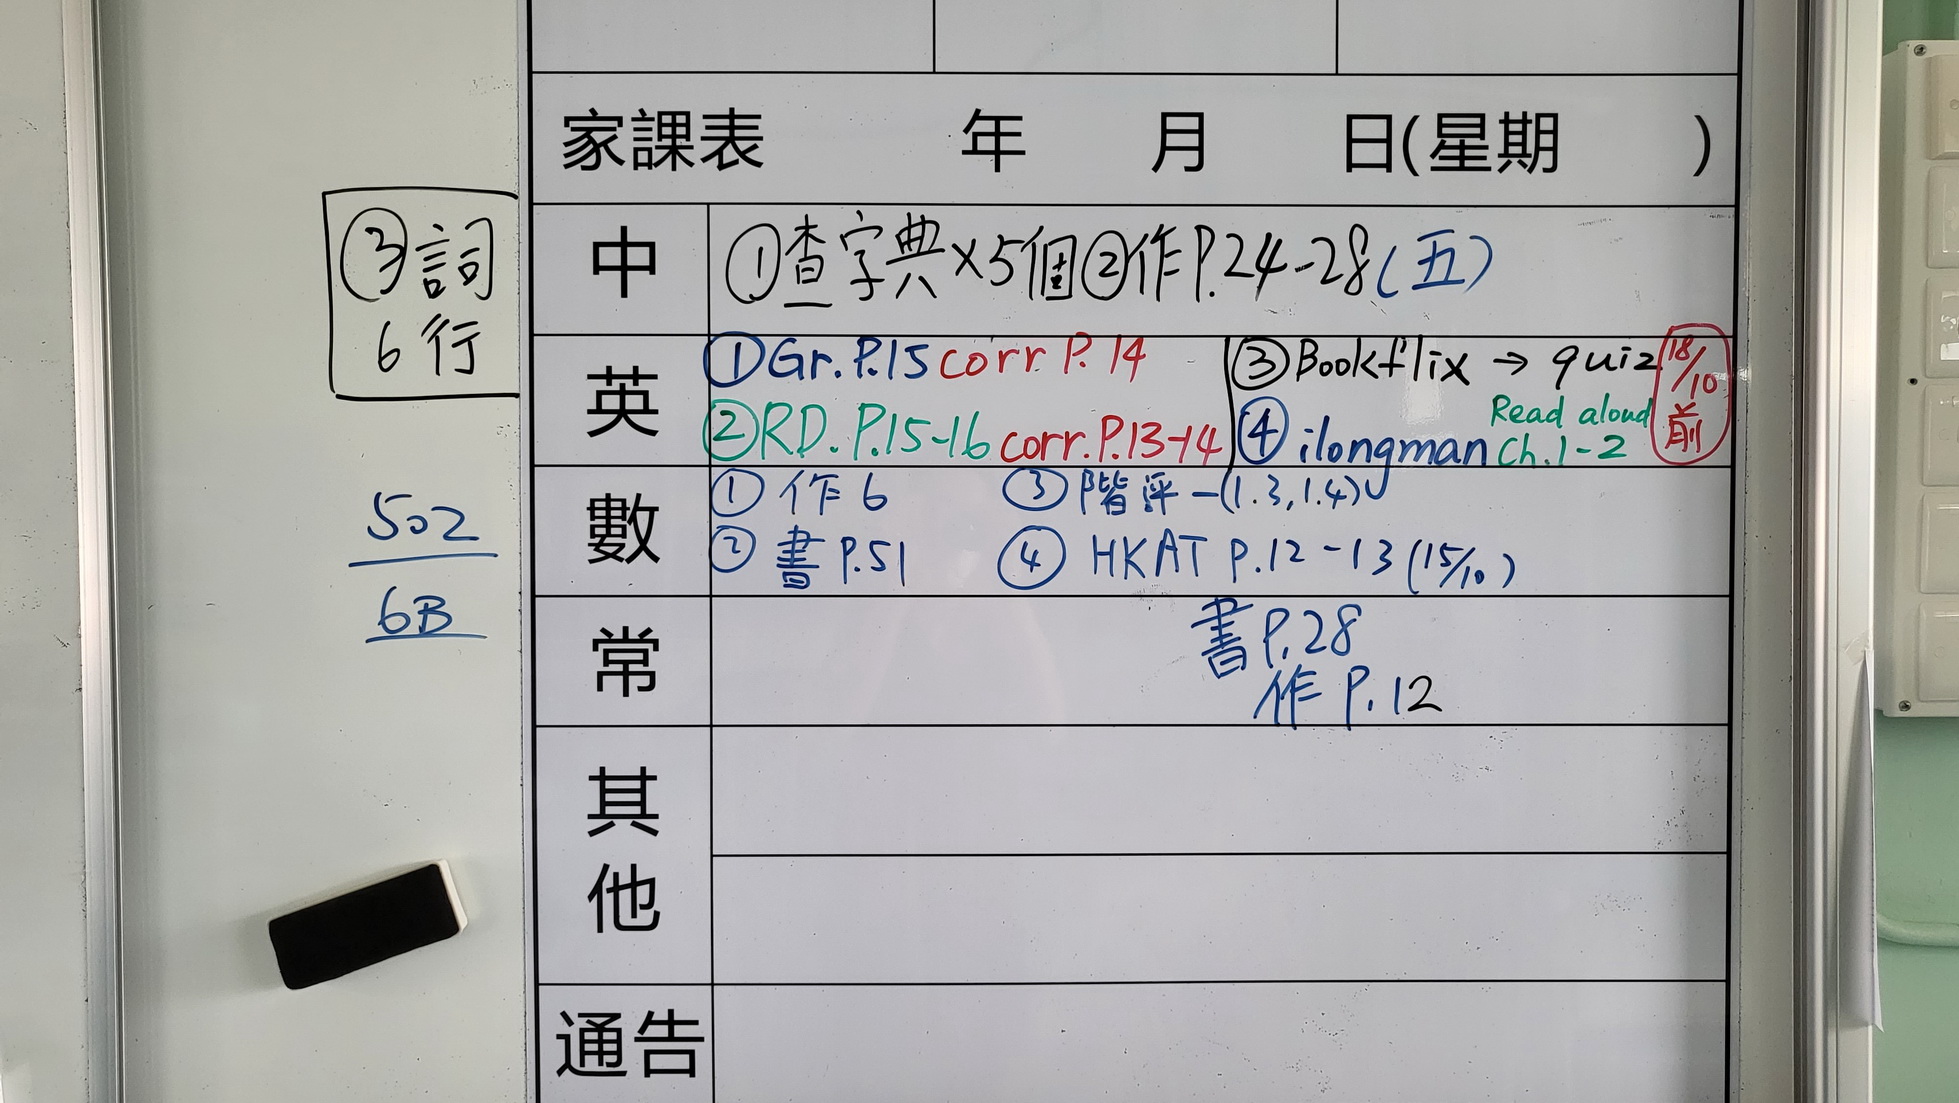 家課表 年 月 日(星期 )
③詞
6行
中
①查字典×5個②作P.24-28(五)
英
①Gr.P.15 corr P.14
②RD.P.15-16 corr.P.13-14
③Bookflix → quiz
④ilongman Read aloud Ch.1-2
18/10前
數
①作6
②書P.51
③階評一(1.3,1.4)
④HKAT P.12-13(15/10)
502
6B
常
書P.28
作P.12
其他
通告